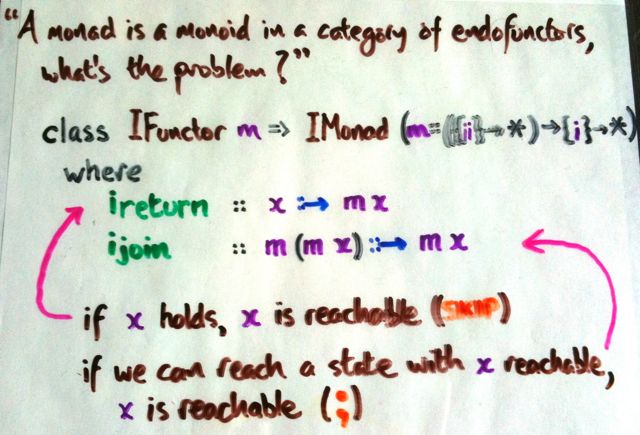 "A monad is a monoid in a category of endofunctors,
what's the problem?"
class IFunctor m => IMonad (m::({i}→*)→{i}→*)
where
ireturn :: x :→ m x
ijoin :: m (m x) :→ m x
if x holds, x is reachable (SKIP)
if we can reach a state with x reachable,
x is reachable (;)